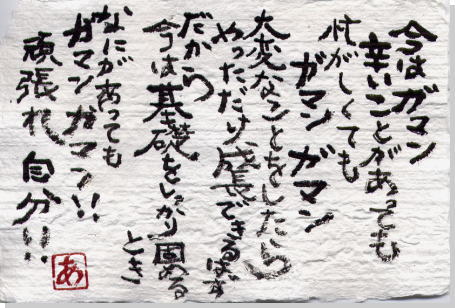 今はガマン
辛いことがあっても
忙がしくても
ガマン ガマン
大変なことをしたら
やっただけ成長できるはず
だから
今は基礎をしっかり固める
とき
なにがあっても
ガマン ガマン!!
頑張れ 自分!!
あ